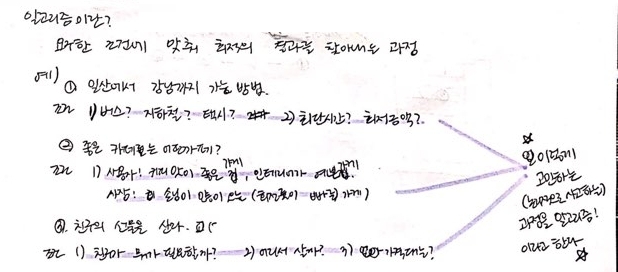 알고리즘이란?
요구한 조건에 맞춰 최적의 결과를 찾아내는 과정
예) ① 일산에서 강남까지 가는 방법.
조건 1) 버스? 지하철? 택시? 2) 최단시간? 최저금액?
② 좋은 카페를 이루는가?
조건 1) 사용자: 커피맛이 좋은 가게, 인테리어가 예쁜 가게
사장: 손님이 많이 오는 (회전율이 빠른 가게)
③ 친구의 선물을 산다.
조건 1) 친구가 뭐가 필요할까? 2) 어디서 살까? 3) 가격대는?
☆
이렇게
고민하는
(논리적으로 사고하는)
과정을 알고리즘!
이라고 한다
☆